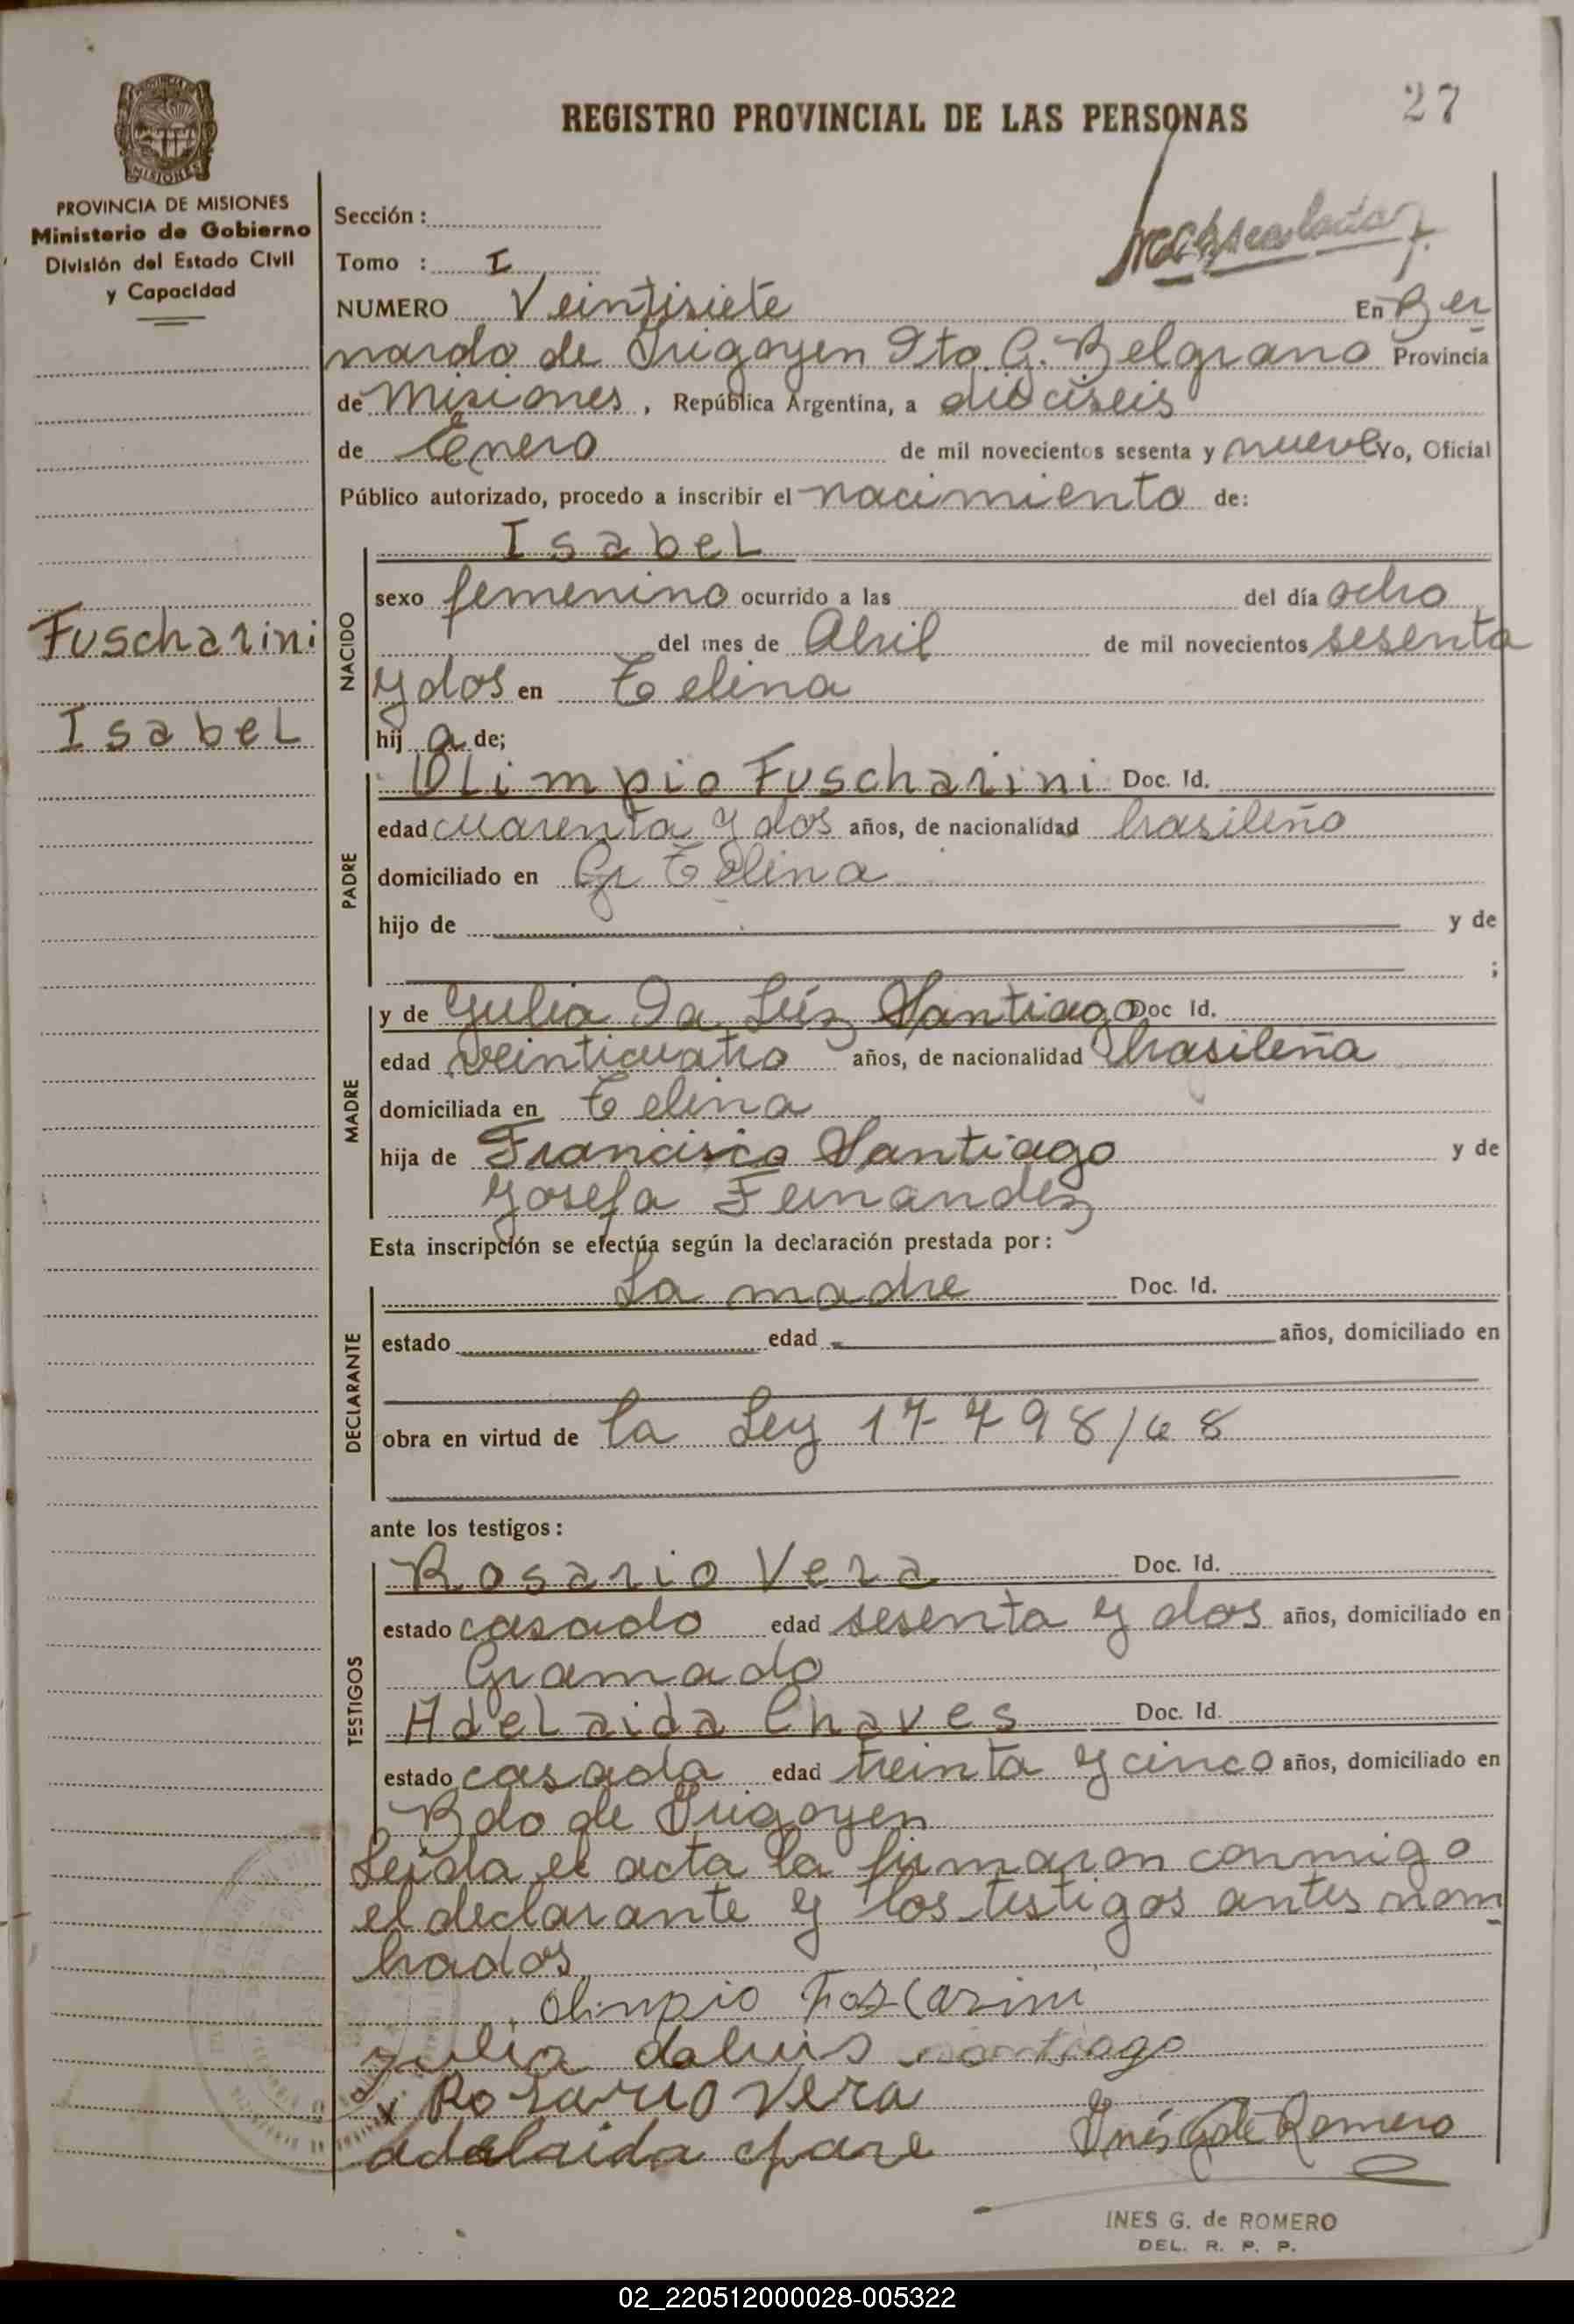 27
REGISTRO PROVINCIAL DE LAS PERSONAS
MISIONES
PROVINCIA DE MISIONES
Ministerio de Gobierno
División del Estado Civil
y Capacidad
Sección :
Tomo : I
NUMERO Veintisiete En Ber
nardo de Irigoyen Dto G. Belgrano Provincia
de Misiones, República Argentina, a dieciseis
de Enero de mil novecientos sesenta y nueve Yo, Oficial
Público autorizado, procedo a inscribir el nacimiento de:
Isabel
NACIDO
sexo femenino ocurrido a las del día ocho
del mes de Abril de mil novecientos sesenta
y dos en Celina
hij a de;
Fuscharini
Isabel
PADRE
Olimpio Fuscharini Doc. Id.
edad cuarenta y dos años, de nacionalidad brasileño
domiciliado en Gr Celina
hijo de y de
;
MADRE
y de Yulia Da Luíz Santiago Doc Id.
edad veinticuatro años, de nacionalidad brasileña
domiciliada en Celina
hija de Francisco Santiago y de
Josefa Fernandez
Esta inscripción se efectúa según la declaración prestada por :
DECLARANTE
La madre Doc. Id.
estado edad años, domiciliado en
obra en virtud de la Ley 17798/68
ante los testigos :
TESTIGOS
Rosario Vera Doc. Id.
estado casado edad sesenta y dos años, domiciliado en
Gramado
Adelaida Chaves Doc. Id.
estado casada edad treinta y cinco años, domiciliado en
Bdo de Irigoyen
Leida el acta la firmaron conmigo
el declarante y los testigos antes nom
brados
Olimpio Foscarini
Julia daluis santiago
x Rosario Vera
adelaida Inés G de Romero
INES G. de ROMERO
DEL. R. P. P.
02_220512000028-005322